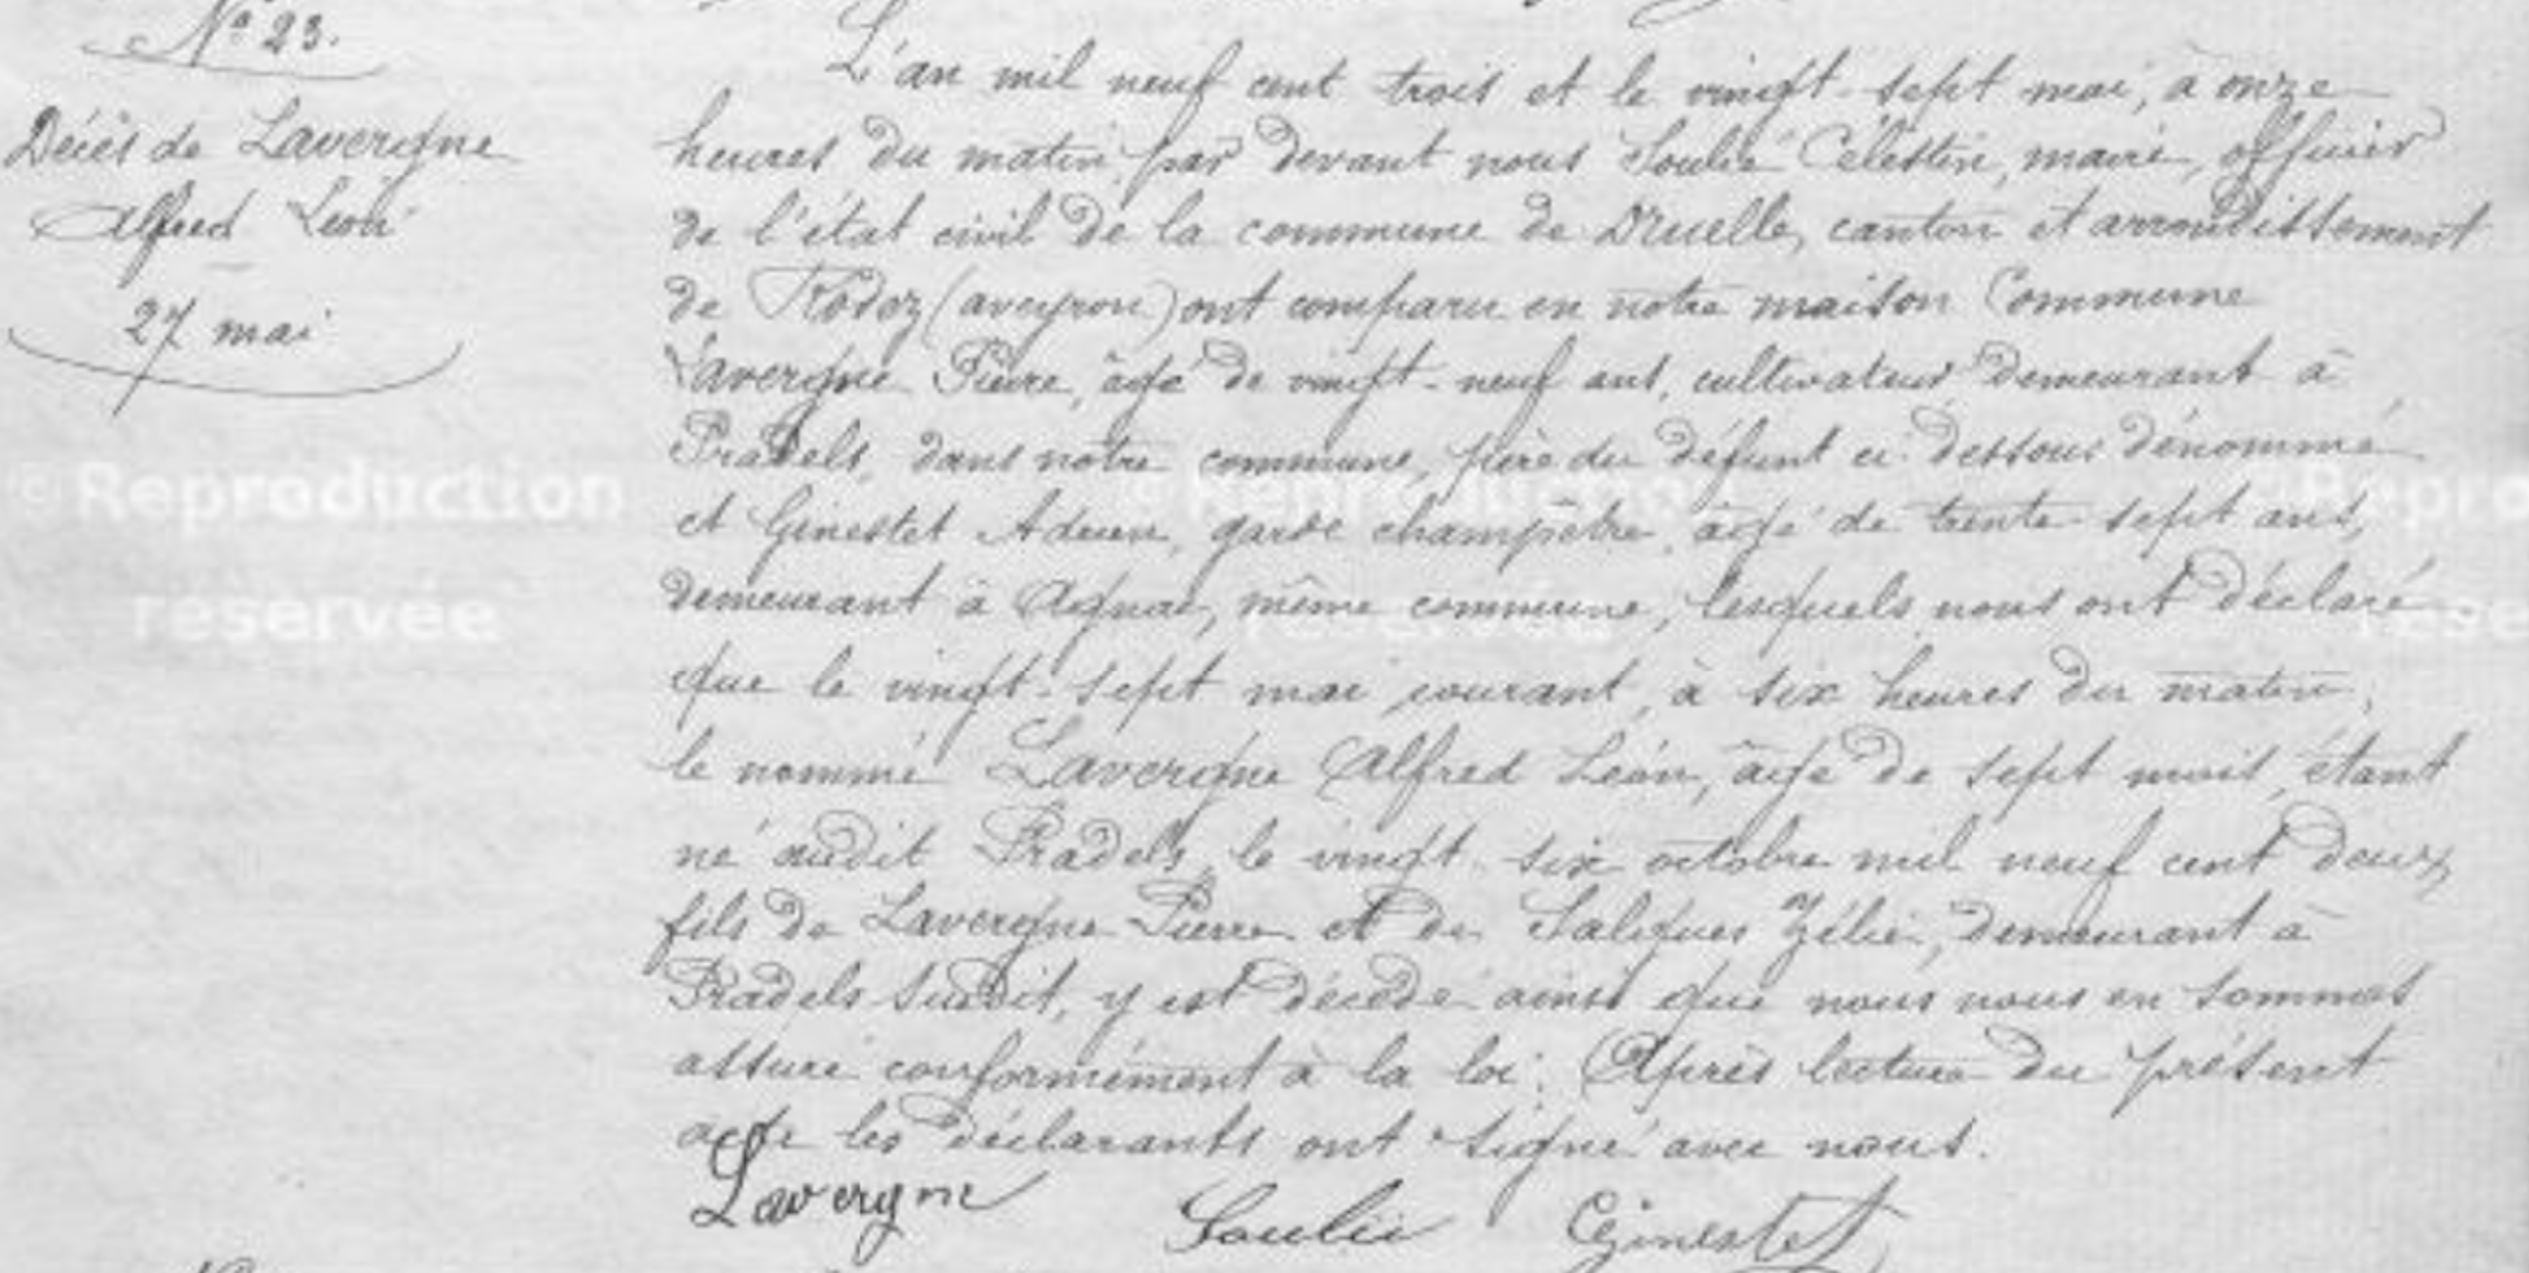 N° 23.
Décès de Lavergne
Alfred Léon
27 mai
L'an mil neuf cent trois et le vingt-sept mai, à onze
heures du matin, par devant nous Soulié Célestin, maire, officier
de l'état civil de la commune de Druelle, canton et arrondissement
de Rodez (aveyron) ont comparu en notre maison Commune
Lavergne Pierre, âgé de vingt-neuf ans, cultivateur demeurant à
Pradels, dans notre commune, père du défunt ci-dessous dénommé
et Ginestet Adrien, garde champêtre, âgé de trente-sept ans,
demeurant à Agnac, même commune, lesquels nous ont déclaré
que le vingt-sept mai courant, à six heures du matin,
le nommé Lavergne Alfred Léon, âgé de sept mois, étant
né audit Pradels, le vingt-six octobre mil neuf cent deux,
fils de Lavergne Pierre et de Saligues Zélie, demeurant à
Pradels susdit, y est décédé ainsi que nous nous en sommes
assuré conformément à la loi. Après lecture du présent
acte les déclarants ont signé avec nous.
Lavergne Soulié Ginestet
© Reproduction
réservée